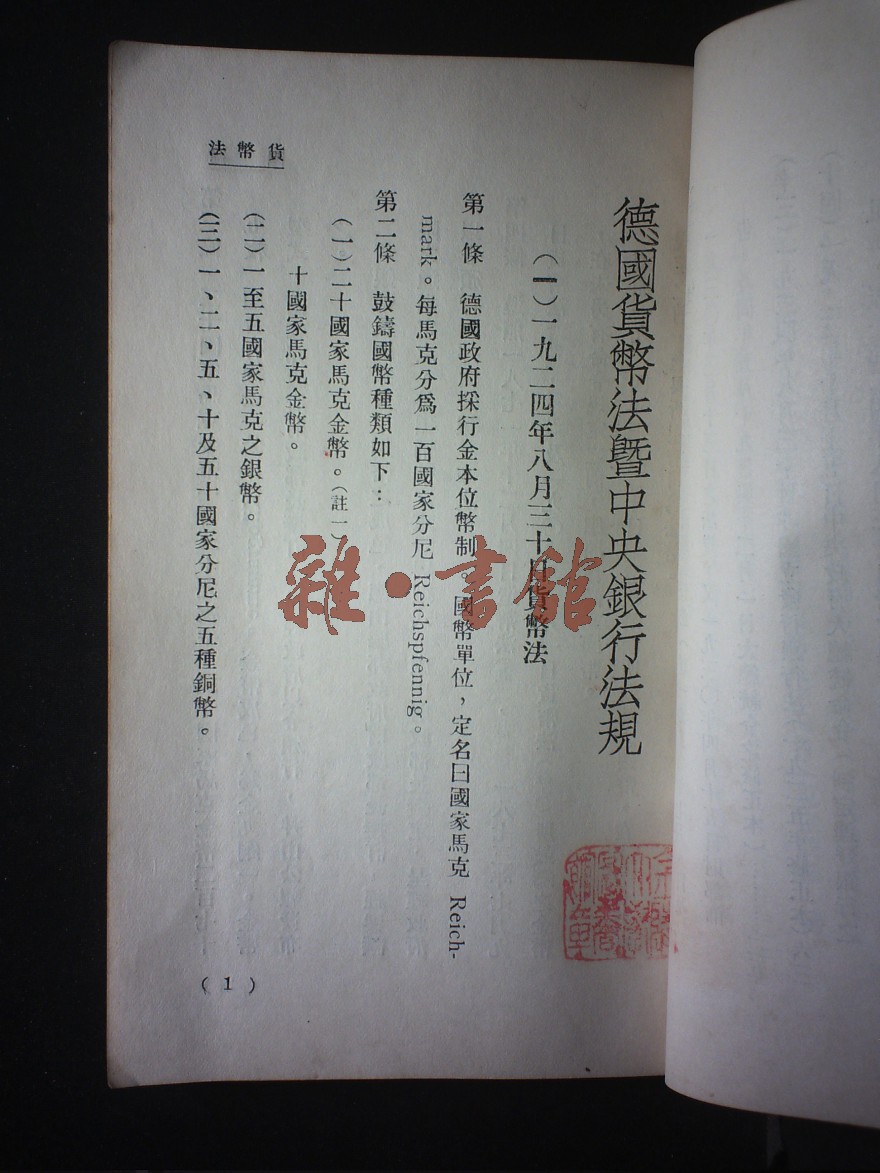 德國貨幣法曁中央銀行法規
(一)一九二四年八月三十日貨幣法
第一條　德國政府採行金本位幣制　國幣單位，定名曰國家馬克 Reich-
mark。每馬克分爲一百國家分尼 Reichspfennig。
第二條　鼓鑄國幣種類如下：
(一)二十國家馬克金幣。(註一)
十國家馬克金幣。
(二)一至五國家馬克之銀幣。
(三)一、二、五、十及五十國家分尼之五種銅幣。
貨幣法
(1)
雜·書館